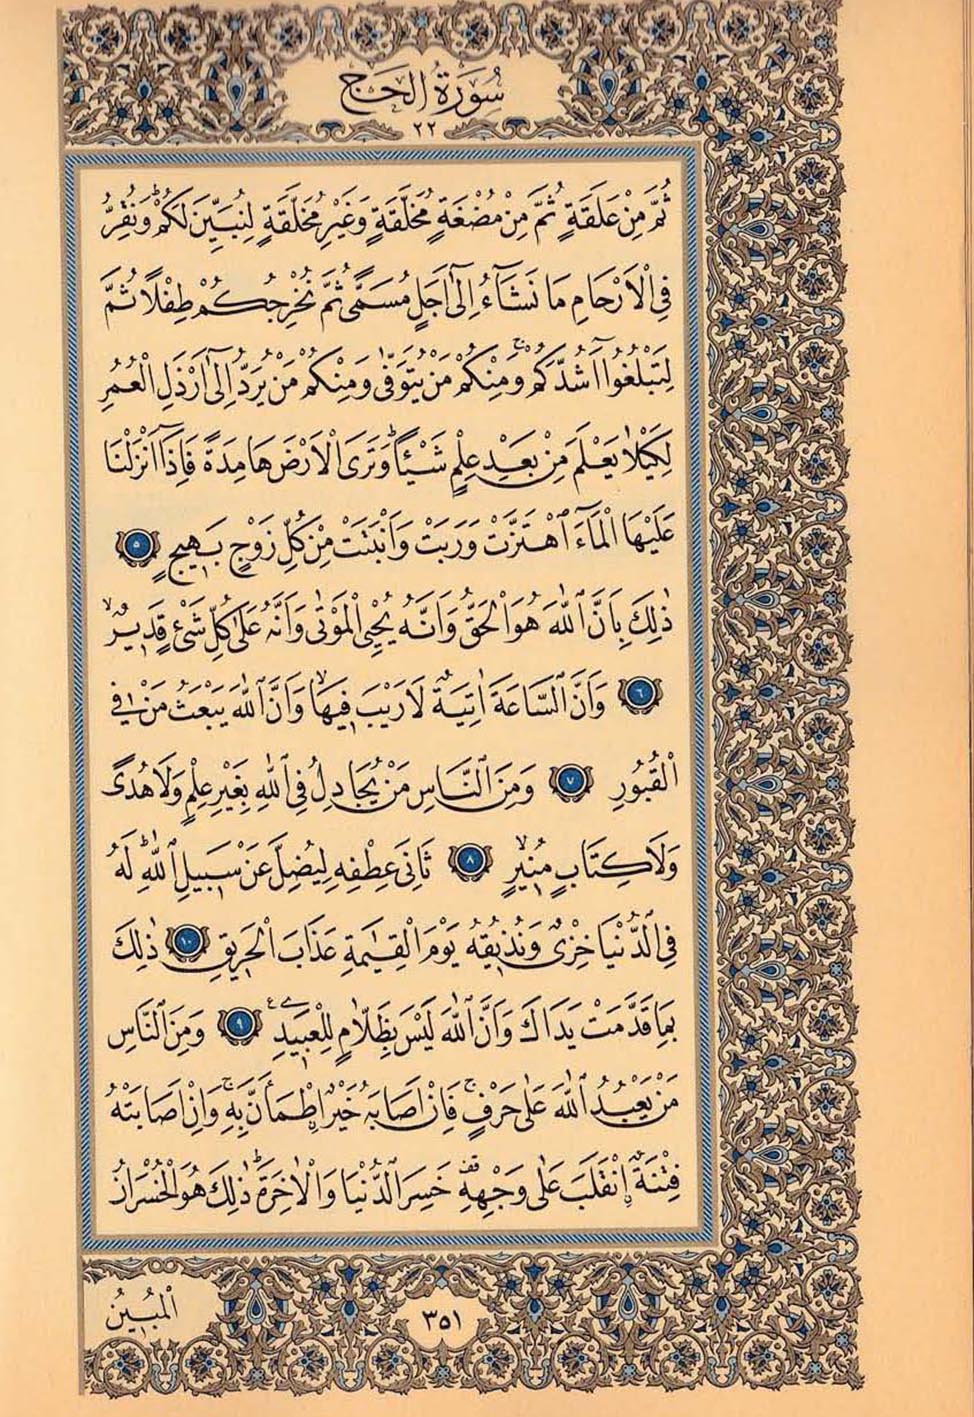 سُورَةُ الحَجّ
٢٢
ثُمَّ مِنْ عَلَقَةٍ ثُمَّ مِنْ مُضْغَةٍ مُخَلَّقَةٍ وَغَيْرِ مُخَلَّقَةٍ لِنُبَيِّنَ لَكُمْ وَنُقِرُّ
فِى الْاَرْحَامِ مَا نَشَآءُ اِلٰٓى اَجَلٍ مُسَمًّى ثُمَّ نُخْرِجُكُمْ طِفْلًا ثُمَّ
لِتَبْلُغُٓوا اَشُدَّكُمْۚ وَمِنْكُمْ مَنْ يُتَوَفّٰى وَمِنْكُمْ مَنْ يُرَدُّ اِلٰٓى اَرْذَلِ الْعُمُرِ
لِكَيْلَا يَعْلَمَ مِنْ بَعْدِ عِلْمٍ شَيْـًٔاۜ وَتَرَى الْاَرْضَ هَامِدَةً فَاِذَٓا اَنْزَلْنَا
عَلَيْهَا الْمَٓاءَ اهْتَزَّتْ وَرَبَتْ وَاَنْبَتَتْ مِنْ كُلِّ زَوْجٍ بَهٖيجٍ ٥
ذٰلِكَ بِاَنَّ اللّٰهَ هُوَ الْحَقُّ وَاَنَّهُ يُحْيِى الْمَوْتٰى وَاَنَّهُ عَلٰى كُلِّ شَىْءٍ قَدٖيرٌۙ
٦ وَاَنَّ السَّاعَةَ اٰتِيَةٌ لَا رَيْبَ فٖيهَاۙ وَاَنَّ اللّٰهَ يَبْعَثُ مَنْ فِى
الْقُبُورِ ٧ وَمِنَ النَّاسِ مَنْ يُجَادِلُ فِى اللّٰهِ بِغَيْرِ عِلْمٍ وَلَا هُدًى
وَلَا كِتَابٍ مُنٖيرٍۙ ٨ ثَانِىَ عِطْفِهٖ لِيُضِلَّ عَنْ سَبٖيلِ اللّٰهِۜ لَهُ
فِى الدُّنْيَا خِزْىٌ وَنُذٖيقُهُ يَوْمَ الْقِيٰمَةِ عَذَابَ الْحَرٖيقِ ١٠ ذٰلِكَ
بِمَا قَدَّمَتْ يَدَاكَ وَاَنَّ اللّٰهَ لَيْسَ بِظَلَّامٍ لِلْعَبٖيدِ ٩ وَمِنَ النَّاسِ
مَنْ يَعْبُدُ اللّٰهَ عَلٰى حَرْفٍۚ فَاِنْ اَصَابَهُ خَيْرٌ اِطْمَاَنَّ بِهٖۚ وَاِنْ اَصَابَتْهُ
فِتْنَةٌ اِنْقَلَبَ عَلٰى وَجْهِهٖ خَسِرَ الدُّنْيَا وَالْاٰخِرَةَۜ ذٰلِكَ هُوَ الْخُسْرَانُ
الْمُبٖينُ
٣٥١